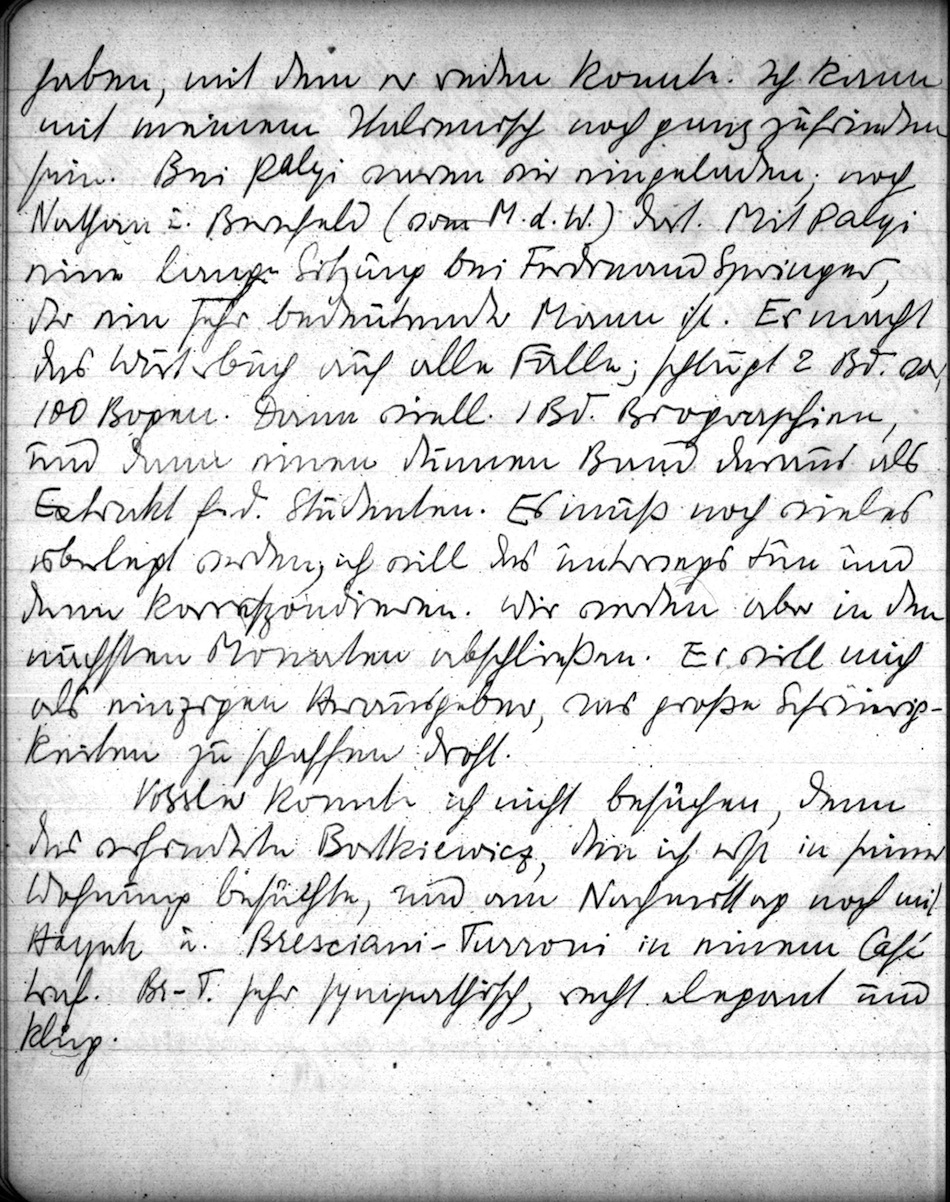 haben, mit dem er reden konnte. Ich kann
mit meinem Italienisch noch ganz zufrieden
sein. Bei Palyi waren wir eingeladen; noch
Nathan u. Bernfeld (vom M. d. W.) dort. Mit Palyi
eine lange Sitzung bei Ferdinand Springer,
der ein sehr bedeutender Mann ist. Er macht
das Wörterbuch auf alle Fälle; schlägt 2 Bd. vor,
100 Bogen. Dann viell. 1 Bd. Biographien,
und dann einen dünnen Band daraus als
Extrakt f. d. Studenten. Es muß noch vieles
überlegt werden; ich will das unterwegs tun und
dann korrespondieren. Wir werden aber in den
nächsten Monaten abschließen. Er will mich
als einzigen Herausgeber, was große Schwierig-
keiten zu schaffen droht.
Vossler konnte ich nicht besuchen, denn
das verhinderte Bortkiewicz, den ich erst in seiner
Wohnung besuchte, und am Nachmittag noch mit
Hayek u. Bresciani-Turroni in einem Café
traf. Br-T. sehr sympathisch, recht elegant und
klug.